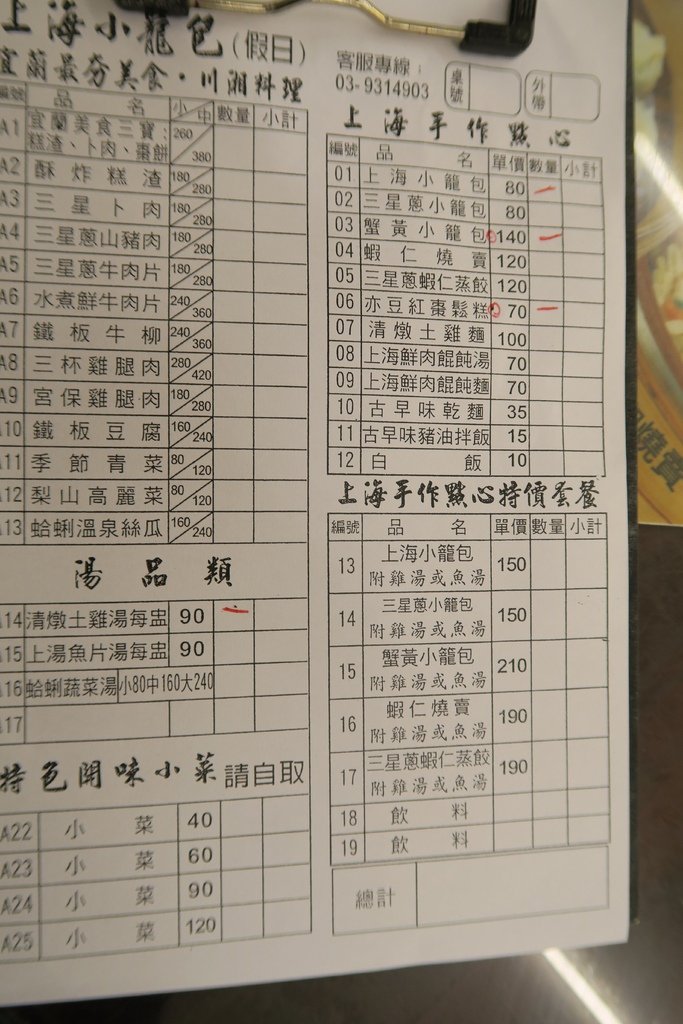 上海小籠包(假日)
宜蘭最夯美食・川湘料理
編號 品名 小/中 數量 小計
A1 宜蘭美食三寶: 糕渣、卜肉、棗餅 260/380
A2 酥炸糕渣 180/280
A3 三星卜肉 180/280
A4 三星蔥山豬肉 180/280
A5 三星蔥牛肉片 180/280
A6 水煮鮮牛肉片 240/360
A7 鐵板牛柳 240/360
A8 三杯雞腿肉 280/420
A9 宮保雞腿肉 180/280
A10 鐵板豆腐 160/240
A11 季節青菜 80/120
A12 梨山高麗菜 80/120
A13 蛤蜊溫泉絲瓜 160/240
湯品類
A14 清燉土雞湯每盅 90
A15 上湯魚片湯每盅 90
A16 蛤蜊蔬菜湯 小80中160大240
A17
特色開味小菜 請自取
A22 小菜 40
A23 小菜 60
A24 小菜 90
A25 小菜 120
客服專線:
03-9314903
桌號
外帶
上海手作點心
編號 品名 單價 數量 小計
01 上海小籠包 80
02 三星蔥小籠包 80
03 蟹黃小籠包 140
04 蝦仁燒賣 120
05 三星蔥蝦仁蒸餃 120
06 亦豆紅棗鬆糕 70
07 清燉土雞麵 100
08 上海鮮肉餛飩湯 70
09 上海鮮肉餛飩麵 70
10 古早味乾麵 35
11 古早味豬油拌飯 15
12 白飯 10
上海手作點心特價套餐
編號 品名 單價 數量 小計
13 上海小籠包 150
附雞湯或魚湯
14 三星蔥小籠包 150
附雞湯或魚湯
15 蟹黃小籠包 210
附雞湯或魚湯
16 蝦仁燒賣 190
附雞湯或魚湯
17 三星蔥蝦仁蒸餃 190
附雞湯或魚湯
18 飲料
19 飲料
總計
燒賣